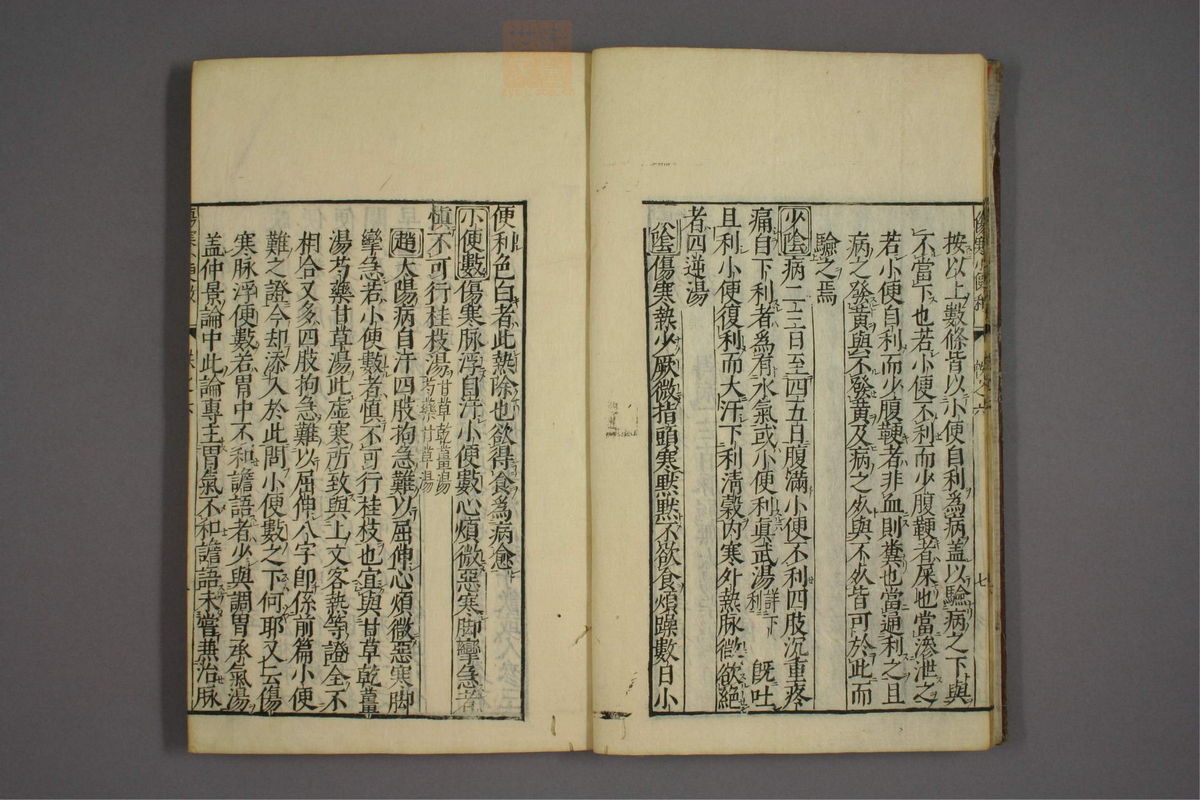 按以上數條皆以小便自利為病蓋以驗病之下與
不當下也若小便不利而少腹鞕者尿也當滲泄之
若小便自利而少腹鞕者非血則糞也當通利之且
病之發黃與不發黃及病之死與不死皆可於此而
驗之焉
少陰病二三日至四五日腹滿小便不利四肢沉重疼
痛自下利者為有水氣或小便利真武湯詳下利 既吐
且利小便復利而大汗下利清穀內寒外熱脉微欲絕
者四逆湯
厥陰傷寒熱少厥微指頭寒默默不欲食煩躁數日小
便利色白者此熱除也欲得食為病愈
小便數傷寒脉浮自汗小便數心煩微惡寒脚攣急者
慎不可行桂枝湯甘草乾薑湯芍藥甘草湯
趙太陽病自汗四肢拘急難以屈伸心煩微惡寒脚
攣急若小便數者慎不可行桂枝也宜與甘草乾薑
湯芍藥甘草湯此虛寒所致與上文客熱等證全不
相合又多四肢拘急難以屈伸八字即係前篇小便
難之證今却添入於此問小便數之下何耶又云傷
寒脉浮便數若胃中不和譫語者少與調胃承氣湯
蓋仲景論中此論專主胃氣不和譫語未嘗兼治脉